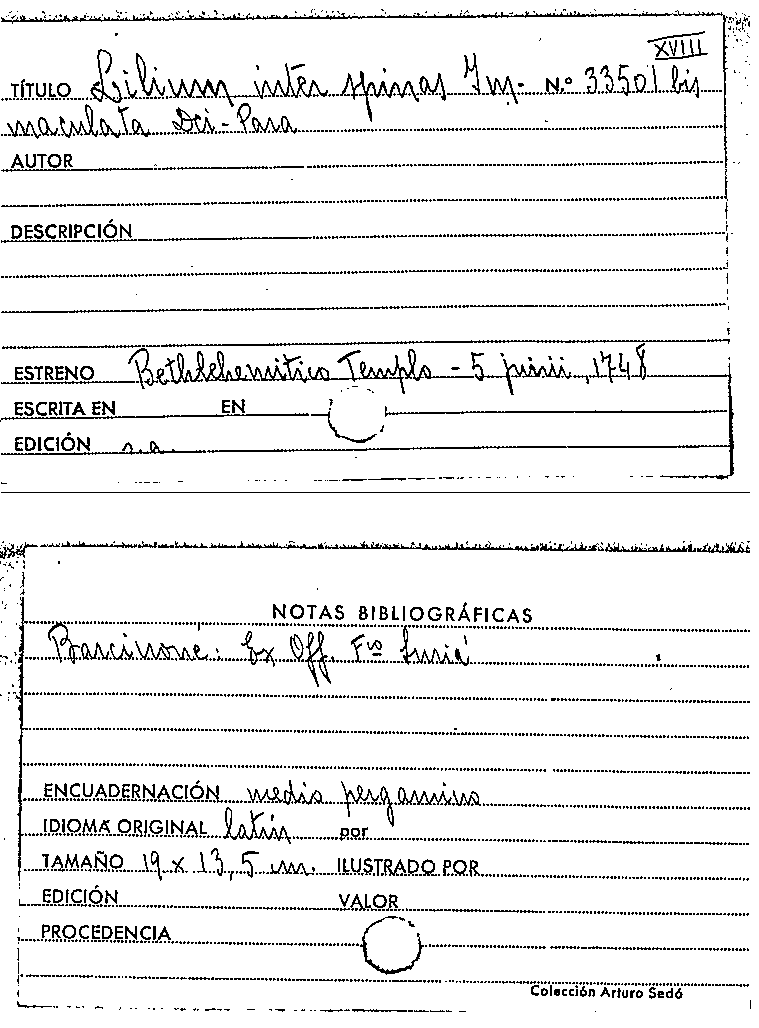 XVIII
TÍTULO Lilium inter spinas Im- N.º 33501 bis
maculata Dei-Para
AUTOR
DESCRIPCIÓN
ESTRENO Bethlehemitico Templo - 5 junii, 1748
ESCRITA EN EN
EDICIÓN s.a.
NOTAS BIBLIOGRÁFICAS
Barcinone: Ex Off. Fco
ENCUADERNACIÓN medio pergamino
IDIOMA ORIGINAL latín por
TAMAÑO 19 x 13,5 cm. ILUSTRADO POR
EDICIÓN VALOR
PROCEDENCIA
Colección Arturo Sedó